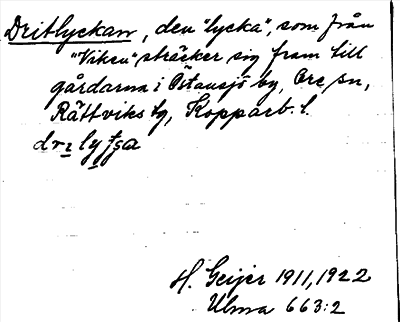 Dritlyckan, den "lycka", som från
"Viken" sträcker sig fram till
gårdarna i Östansjö by, Ore sn,
Rättviks tg, Kopparb. l.
H. Geijer 1911, 1922
Ulma 663:2